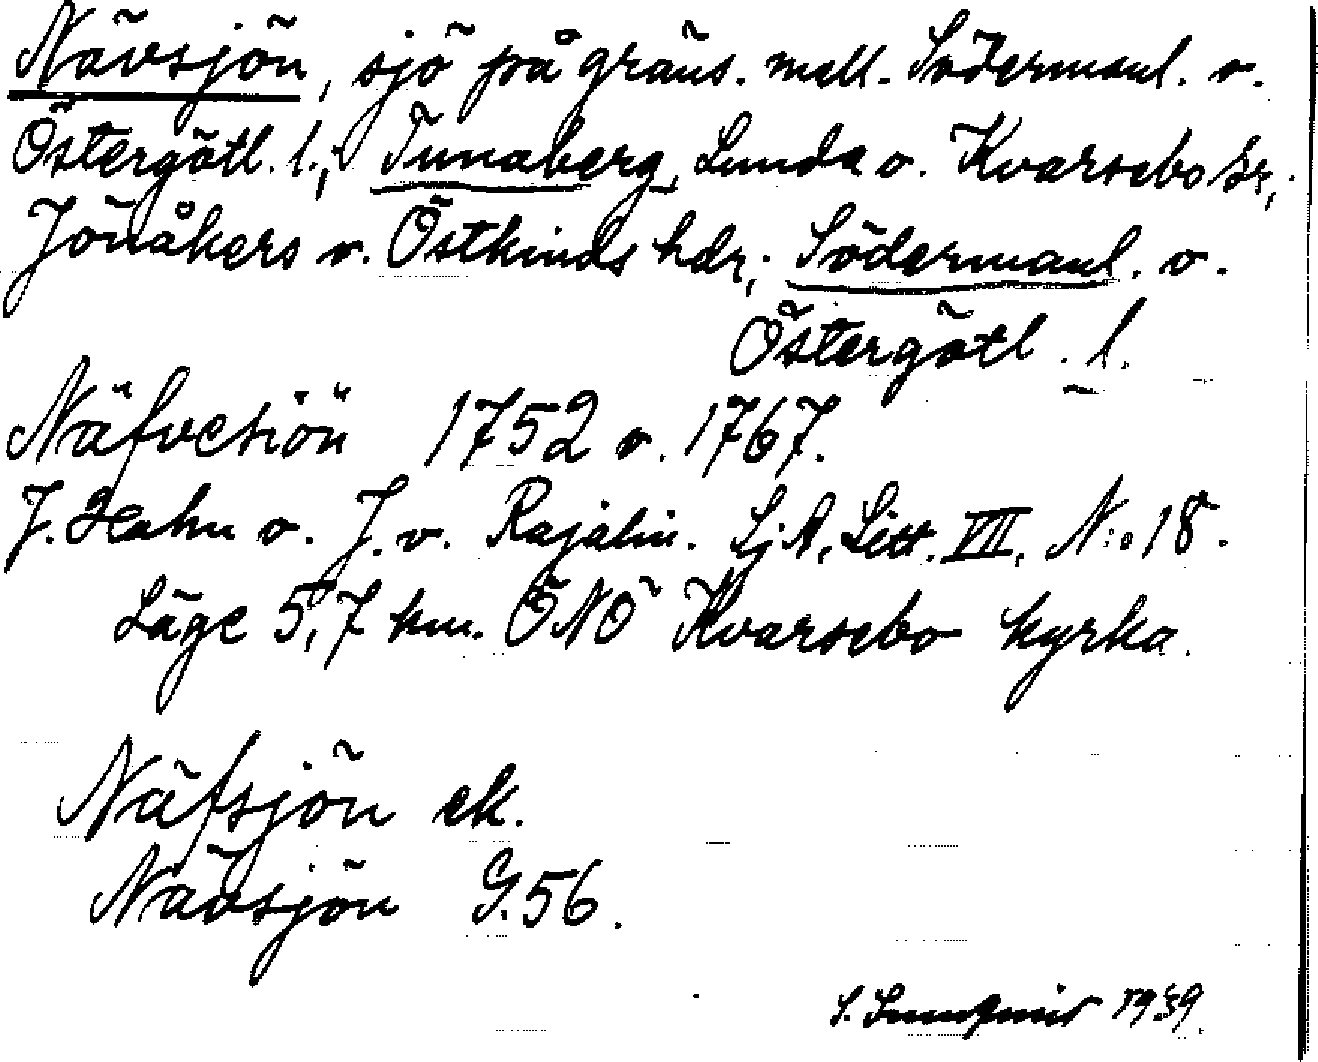 Nävsjön, sjö på gräns. mell. Södermanl. o.
Östergötl. l.; Tunaberg, Lunda o. Kvarsebo sr,
Jönåkers o. Östkinds hdr; Södermanl. o.
Östergötl. l.
Näfvesiön 1752 o. 1767.
J. Hahn o. J. v. Rajalin. SjA, Litt. VII, N:o 18.
Läge 5,7 km. ÖNÖ Kvarsebo kyrka.
Näfsjön ek.
Nävsjön G. 56.
S. 1939.